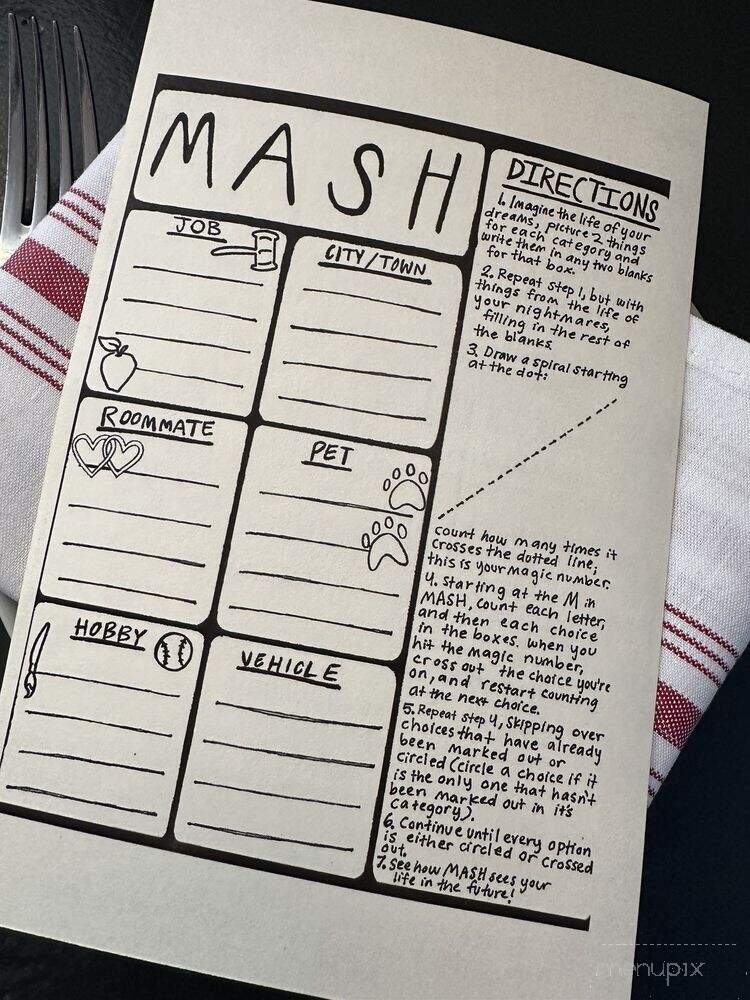 MASH
JOB
CITY/TOWN
ROOMMATE
PET
HOBBY
VEHICLE
DIRECTIONS
1. Imagine the life of your
dreams, picture 2 things
for each category and
write them in any two blanks
for that box.
2. Repeat step 1, but with
things from the life of
your nightmares,
filling in the rest of
the blanks.
3. Draw a spiral starting
at the dot:
count how many times it
crosses the dotted line;
this is your magic number.
4. Starting at the M in
MASH, count each letter,
and then each choice
in the boxes. When you
hit the magic number,
cross out the choice you're
on, and restart counting
at the next choice.
5. Repeat step 4, skipping over
choices that have already
been marked out or
circled (circle a choice if it
is the only one that hasn't
been marked out in it's
category).
6. Continue until every option
is either circled or crossed
out.
7. See how MASH sees your
life in the future!
menupix